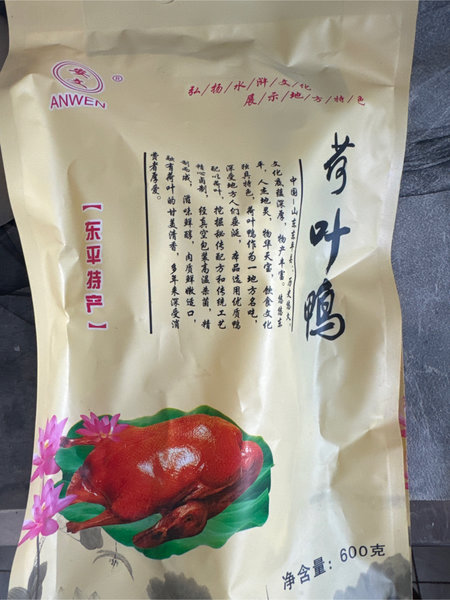 安文
ANWEN
®
弘/扬/水/浒/文/化
展/示/地/方/特/色
荷叶鸭
【东平特产】
中国—山东东平县，历史悠久，
文化底蕴深厚，物产丰富。悠悠东
平，人杰地灵，物华天宝，饮食文化
独具特色，荷叶鸭作为一地方名吃，
深受地方人们垂涎，本品选用优质鸭
配以荷叶，挖掘秘传配方和传统工艺
精心卤制，经真空包装高温杀菌，精
制而成，滋味鲜醇，肉质鲜嫩适口，
融有荷叶的甘美清香，多年来深受消
费者厚爱。
净含量：600克